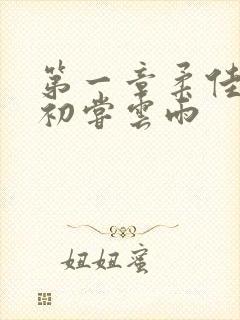 第一章柔佳
初尝云雨
妞妞蜜